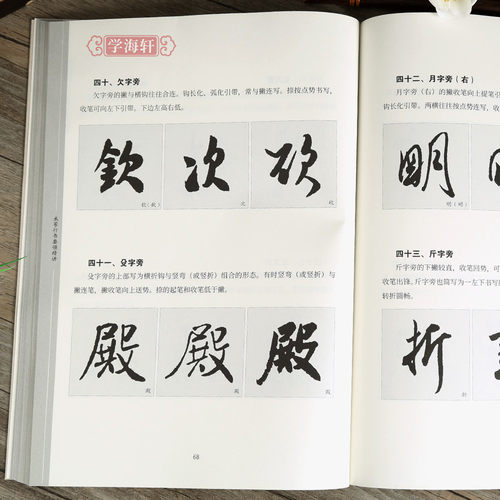 学海轩
四十、欠字旁
欠字旁的撇与横钩往往合连。钩长化、弧化引带，常与撇连写。捺按点势书写，
收笔可向左下引带，下边左高右低。
欽 次 欣
欽（欽） 次
四十一、殳字旁
殳字旁的上部写为横折钩与竖弯（或竖折）组合的形态。有时竖弯（或竖折）与
撇连笔，撇收笔向上送势。捺的起笔和收笔低于撇。
殿 殿 殿
殿 殿 殿
68
四十二、月字旁（右）
月字旁（右）的撇收笔向上提笔引
钩长化引带。两横往往按点连写，收
明
明（明）
四十三、斤字旁
斤字旁的下撇较直，收笔回势，可
收笔出锋。斤字旁也简写为一左下书写
转折圆畅。
折
折